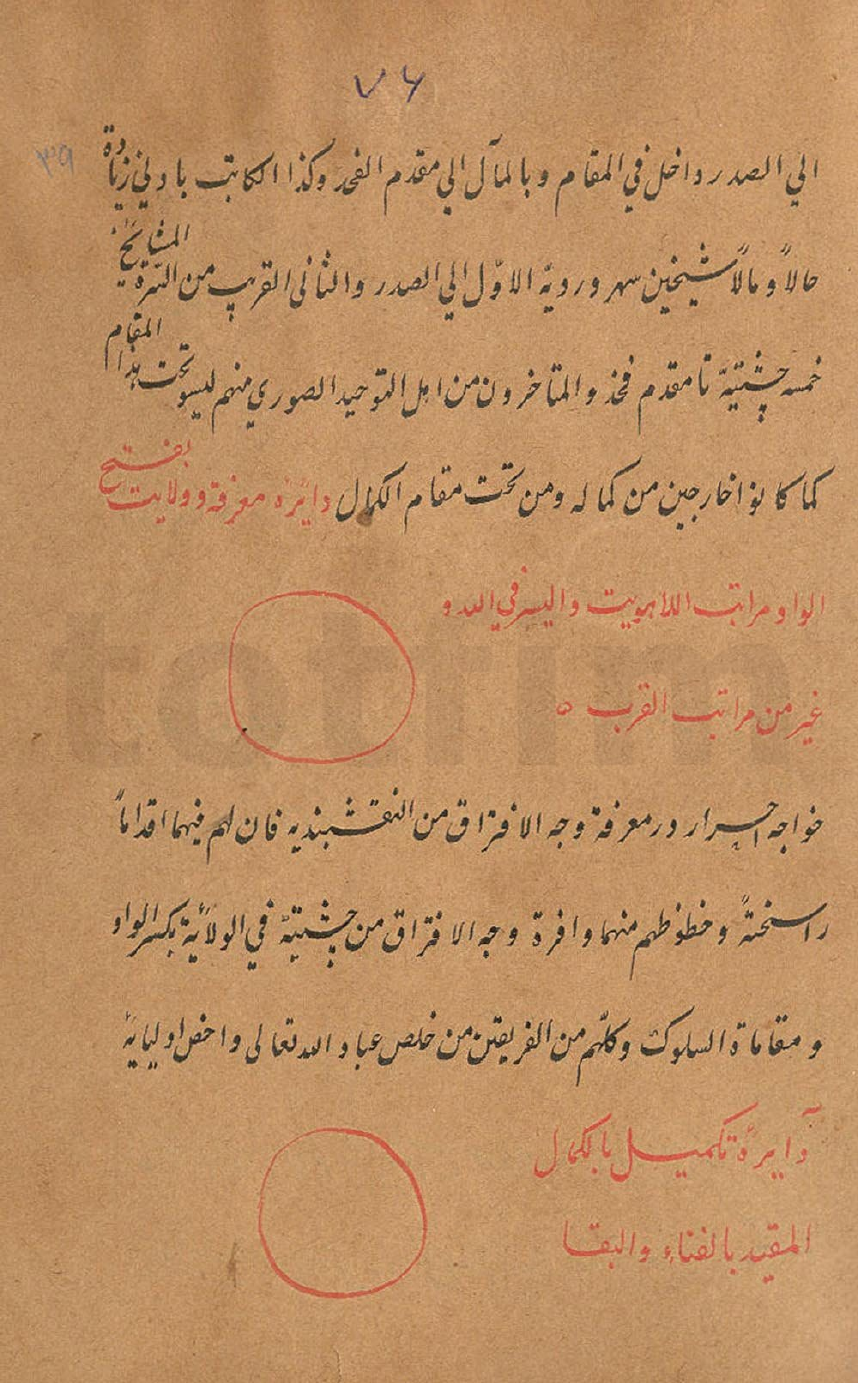 ٧٦
٣٩
الي الصدر داخل في المقام وبالمآل الي مقدم الفخد وكذا الكاتب بادني زيادة
حالاً ومالاً شيخين سهرورديّة الاوّل الي الصدر والثاني القريب من السّرة المشايخ
خمسه چشتيّة تا مقدم فخذ والمتاخرون من اهل التوحيد الصوري منهم ليسو تحت هذا المقام
كما كانوا خارجين من كماله ومن تحت مقام الكمال دايرة معرفة وولايت بفتح
الواو مراتب اللاهوييت والسير في الله و
غير من مراتب القرب ٥
خواجه احرار در معرفة وجه الافتراق من النقشبنديه فان لهم فيهما اقداماً
راسخةً وحظوظهم منهما وافرة وجه الافتراق من چشتيّة في الولائية بكسر الواو
ومقاماة السلوك وكلّهم من الفريقين من خلص عباد الله تعالى واخص اوليايه
دايرة تكميل بالكمال
المقيد بالفناء والبقا
totfim